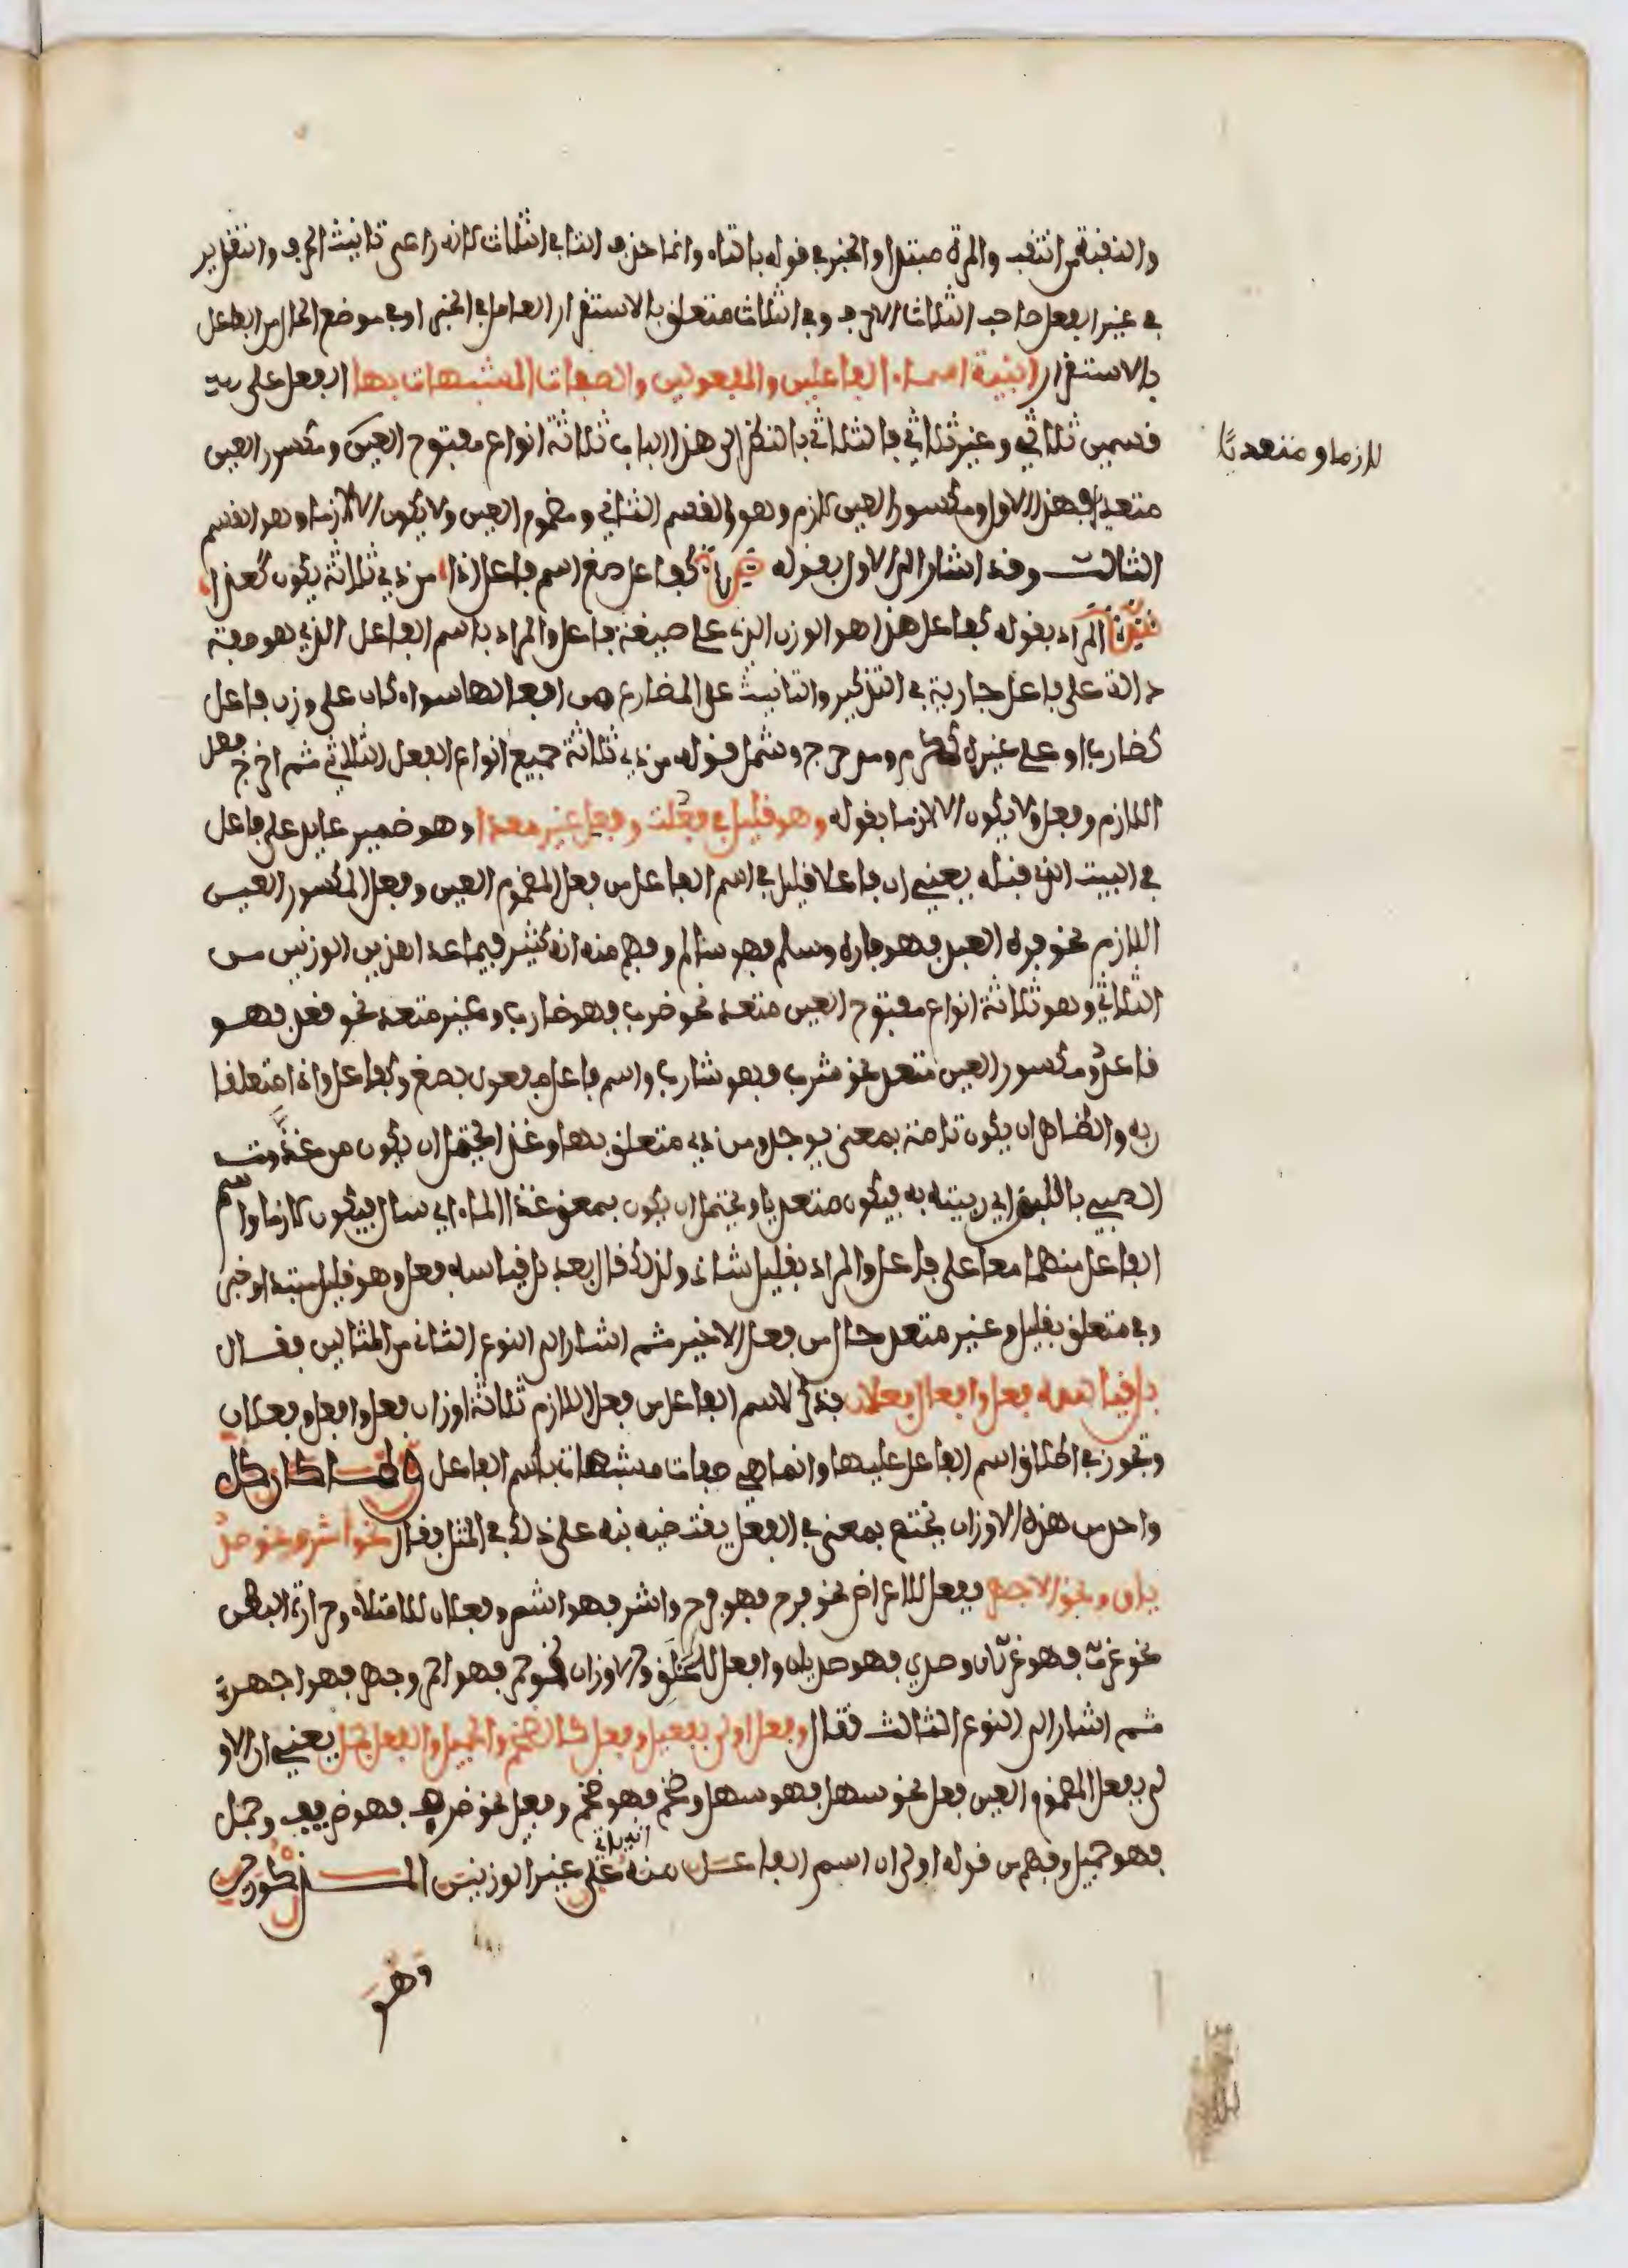 والنقبة من انتقب والمرة مبتدا والخبر في قوله بالتاء وانما حذف التا في الثلاث لانه راعى تانيث الحرف والتقدير
في غير الفعل صاحب الثلاث الاحرف وفي الثلاث متعلق بالاستقرار العامل في الخبر او في موضع الحال من الفاعل
بالاستقرار ابنية اسماء الفاعلين والمفعولين والصفات المشبهات بها الفعل على
قسمين ثلاثي وغير ثلاثي فالثلاثي بالنظر الى هذا الباب ثلاثة انواع مفتوح العين ومكسور العين
لازما ومتعديا
متعد فهذا الاول ومكسور العين لازم وهو القسم الثاني ومضموم العين ولا يكون الا لازما وهو القسم
الثالث وقد اشار الى الاول بقوله كفاعل صغ اسم فاعل اذا من ذي ثلاثة يكون كغذا
المراد بقوله كفاعل هذا هو الوزن الذي على صيغة فاعل والمراد باسم الفاعل الذي هو صفة
دالة على فاعل جارية في التذكير والتانيث على المضارع من افعالها سواء كان على وزن فاعل
كضارب او على غيره كمكرم ومدحرج وشمل قوله من ذي ثلاثة جميع انواع الفعل الثلاثي ثم اخرج فعل
اللازم وفعل ولا يكون الا لازما بقوله وهو قليل في فعلت وفعل غير معدا وهو ضمير عايد على فاعل
في البيت الذي قبله يعني ان فاعلا قليل في اسم الفاعل من فعل المضموم العين وفعل المكسور العين
اللازم نحو فره العبد فهو فاره وسلم فهو سالم وفهم منه انه كثير فيما عدا هذين الوزنين من
الثلاثي وهو ثلاثة انواع مفتوح العين متعد نحو ضرب فهو ضارب وغير متعد نحو قعد فهو
قاعد ومكسور العين متعد نحو شرب فهو شارب واسم فاعل مفعول بصغ وكفاعل واذا متعلقا
به والظاهر ان يكون تامة بمعنى يوجد ومن ذي متعلق بها وغذا يحتمل ان يكون من غذوت
الصبي باللبن اي ربيته به فيكون متعديا ويحتمل ان يكون بمعنى غذا الماء اي سال فيكون لازما واسم
الفاعل منهما معا على فاعل والمراد بقليل شاذ ولذلك قال بعد بل قياسه فعل وهو قليل مبتدا وخبر
وفي متعلق بقليل وغير متعد حال من فعل الاخير ثم اشار الى النوع الثاني من المثالين فقال
بل قياسه فعل وافعل فعلان فذكر لاسم الفاعل من فعل اللازم ثلاثة اوزان فعل وافعل وفعلان
وتجوز في اطلاق اسم الفاعل عليها وانما هي صفات مشبهات باسم الفاعل ولما كان كل
واحد من هذه الاوزان يختص بمعنى في الفعل يقتضيه نبه على ذلك في المثل فقال نحو اشر ونحو صد
يان ونحو الاجهر ففعل للاعراض نحو فرح فهو فرح واشر فهو اشر وفعلان للامتلاء وحرارة البطن
نحو غرث فهو غرثان وصدي فهو صديان وافعل للخلق والاوزان نحو حمر فهو احمر وجهر فهو اجهر
ثم اشار الى النوع الثالث فقال وفعل اولى وفعيل بفعل كالضخم والجميل والفعل جمل يعني ان الاو
لى بفعل المضموم العين فعل نحو سهل فهو سهل وضخم فهو ضخم وفعيل نحو ظرف فهو ظريف وجمل
فهو جميل وفهم من قوله اولى ان اسم الفاعل منه قد ياتي على غير الوزنين المذكورين
وهو